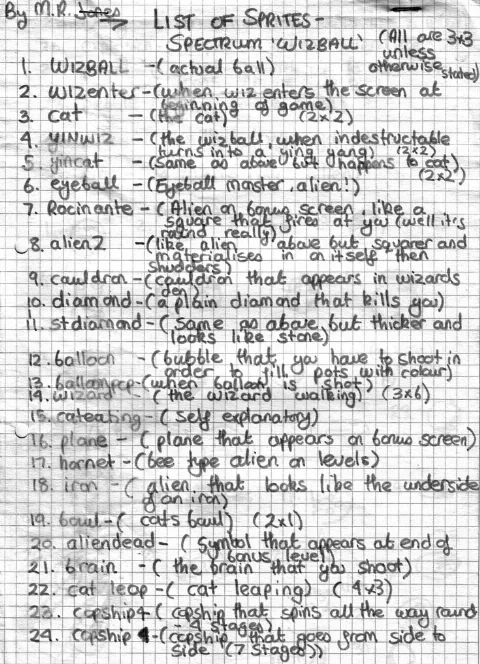 By M.R. Jones → LIST OF SPRITES -
SPECTRUM 'WIZBALL' (All are 3x3
unless
otherwise stated)
1. WIZBALL - (actual ball)
2. WIZenter - (when wiz enters the screen at
beginning of game)
3. cat - (the cat) (2x2)
4. YINWIZ - (the wizball, when indestructable
turns into a ying yang) (2x2)
5. yincat - (same as above but happens to cat)
(2x2)
6. eyeball - (Eyeball master, alien!)
7. Rocinante - (Alien on bonus screen, like a
square that fires at you (well it's
round really)
8. alien2 - (like alien above but squarer and
materialises in on itself then
shudders)
9. cauldron - (cauldron that appears in wizards
den)
10. diamond - (a plain diamond that kills you)
11. stdiamond - (same as above, but thicker and
looks like stone)
12. balloon - (bubble that you have to shoot in
order to fill pots with colour)
13. ballompop - (when balloon is shot)
14. wizard - (the wizard walking) (3x6)
15. cateating - (self explanatory)
16. plane - (plane that appears on bonus screen)
17. hornet - (bee type alien on levels)
18. iron - (alien that looks like the underside
of an iron)
19. bowl - (cats bowl) (2x1)
20. aliendead - (symbol that appears at end of
bonus level)
21. brain - (the brain that you shoot)
22. cat leap - (cat leaping) (4x3)
23. copship4 - (copship that spins all the way round
- 4 stages)
24. copship - (copship that goes from side to
side (7 stages))